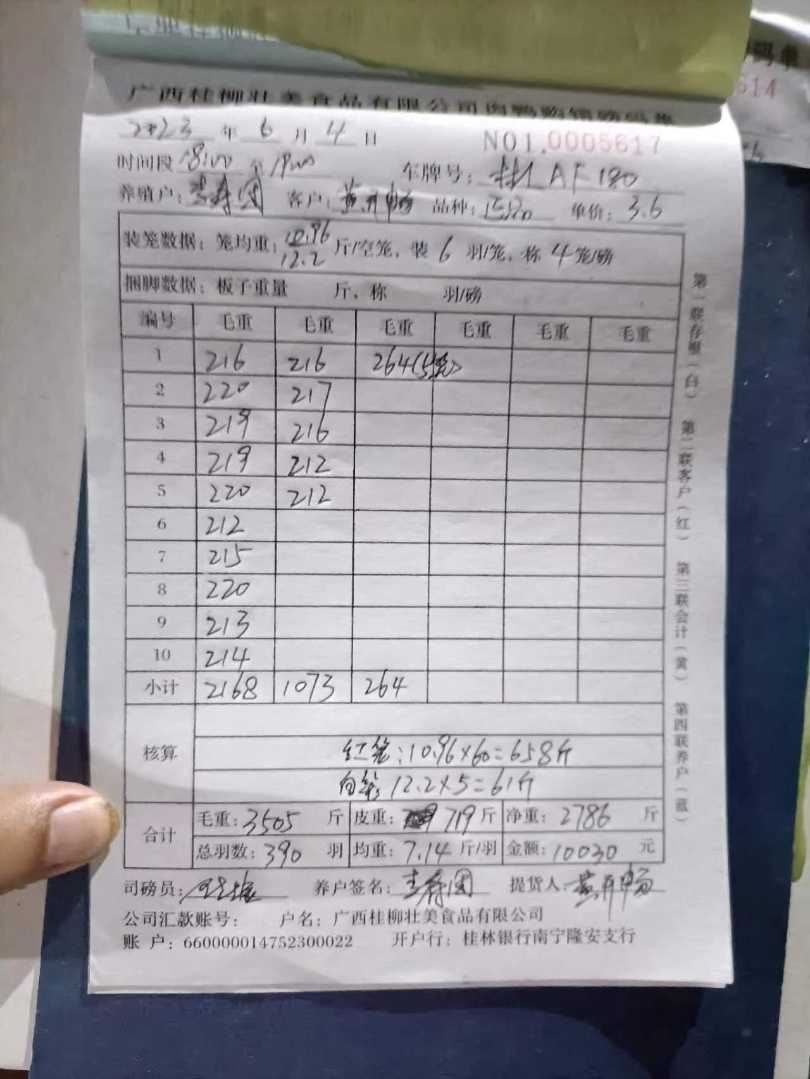 广西桂柳壮美食品有限公司肉鸭购销磅码单
码单
614
2023 年 6 月 4 日 NO1.0005617
时间段 18:00 至 19:00 车牌号: 桂AF180
养殖户: 客户: 品种: 单价: 3.6
装笼数据: 笼均重: 10.96 12.2 斤/空笼, 装 6 羽/笼, 称 4 笼/磅
捆脚数据: 板子重量 斤, 称 羽/磅
编号 毛重 毛重 毛重 毛重 毛重 毛重
1 216 216 264(5笼)
2 220 217
3 219 216
4 219 212
5 220 212
6 212
7 215
8 220
9 213
10 214
小计 2168 1073 264
核算
红笼: 10.96×60=658斤
白笼: 12.2×5=61斤
合计 毛重: 3505 斤 皮重: 719 斤 净重: 2786 斤
总羽数: 390 羽 均重: 7.14 斤/羽 金额: 10030 元
司磅员: 养户签名: 提货人:
公司汇款账号: 户名: 广西桂柳壮美食品有限公司
账 户: 660000014752300022 开户行: 桂林银行南宁隆安支行
第一联存根(白) 第二联客户(红) 第三联会计(黄) 第四联养户(蓝)